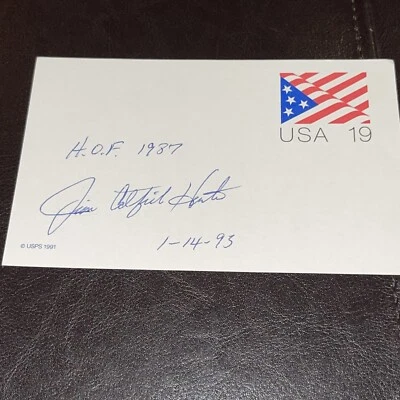 USA 19
H.O.F. 1987
Jim Catfish Hunter
1-14-93
© USPS 1991